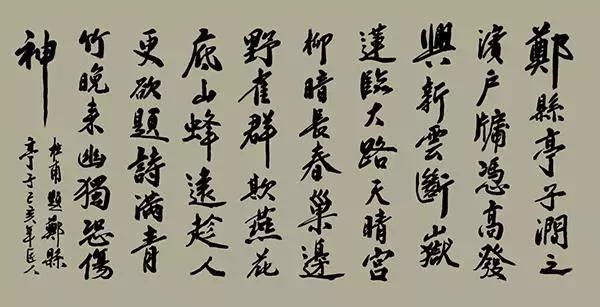 鄭縣亭子澗之
濱戶牖憑高發
興新雲斷嶽
蓮臨大路天晴宮
柳暗長春巢邊
野雀群欺燕花
底山蜂遠趁人
更欲題詩滿青
竹晚來幽獨恐傷
神
杜甫題鄭縣
亭子己亥年人